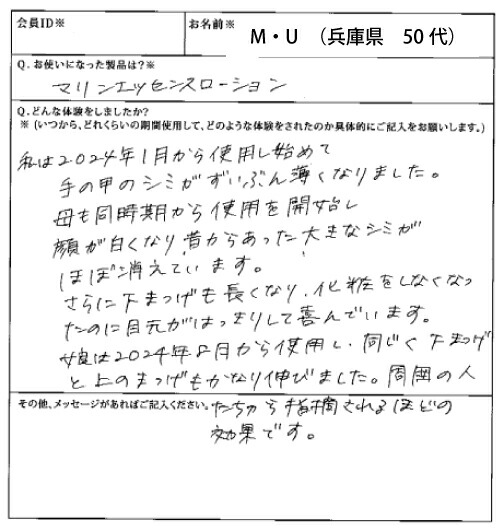 会員ID※
お名前※
M・U （兵庫県 50代）
Q. お使いになった製品は?※
マリンエッセンスローション
Q. どんな体験をしましたか?
※（いつから、どれくらいの期間使用して、どのような体験をされたのか具体的にご記入をお願いします。）
私は2024年1月から使用し始めて
手の甲のシミがずいぶん薄くなりました。
母も同時期から使用を開始し
顔が白くなり、昔からあった大きなシミが
ほぼ消えています。
さらに下まつげも長くなり、化粧をしなくなっ
たのに目元がはっきりして喜んでいます。
娘は2024年8月から使用し、同じく下まつげ
と上のまつげもかなり伸びました。周囲の人
その他、メッセージがあればご記入ください。
たちから指摘されるほどの
効果です。